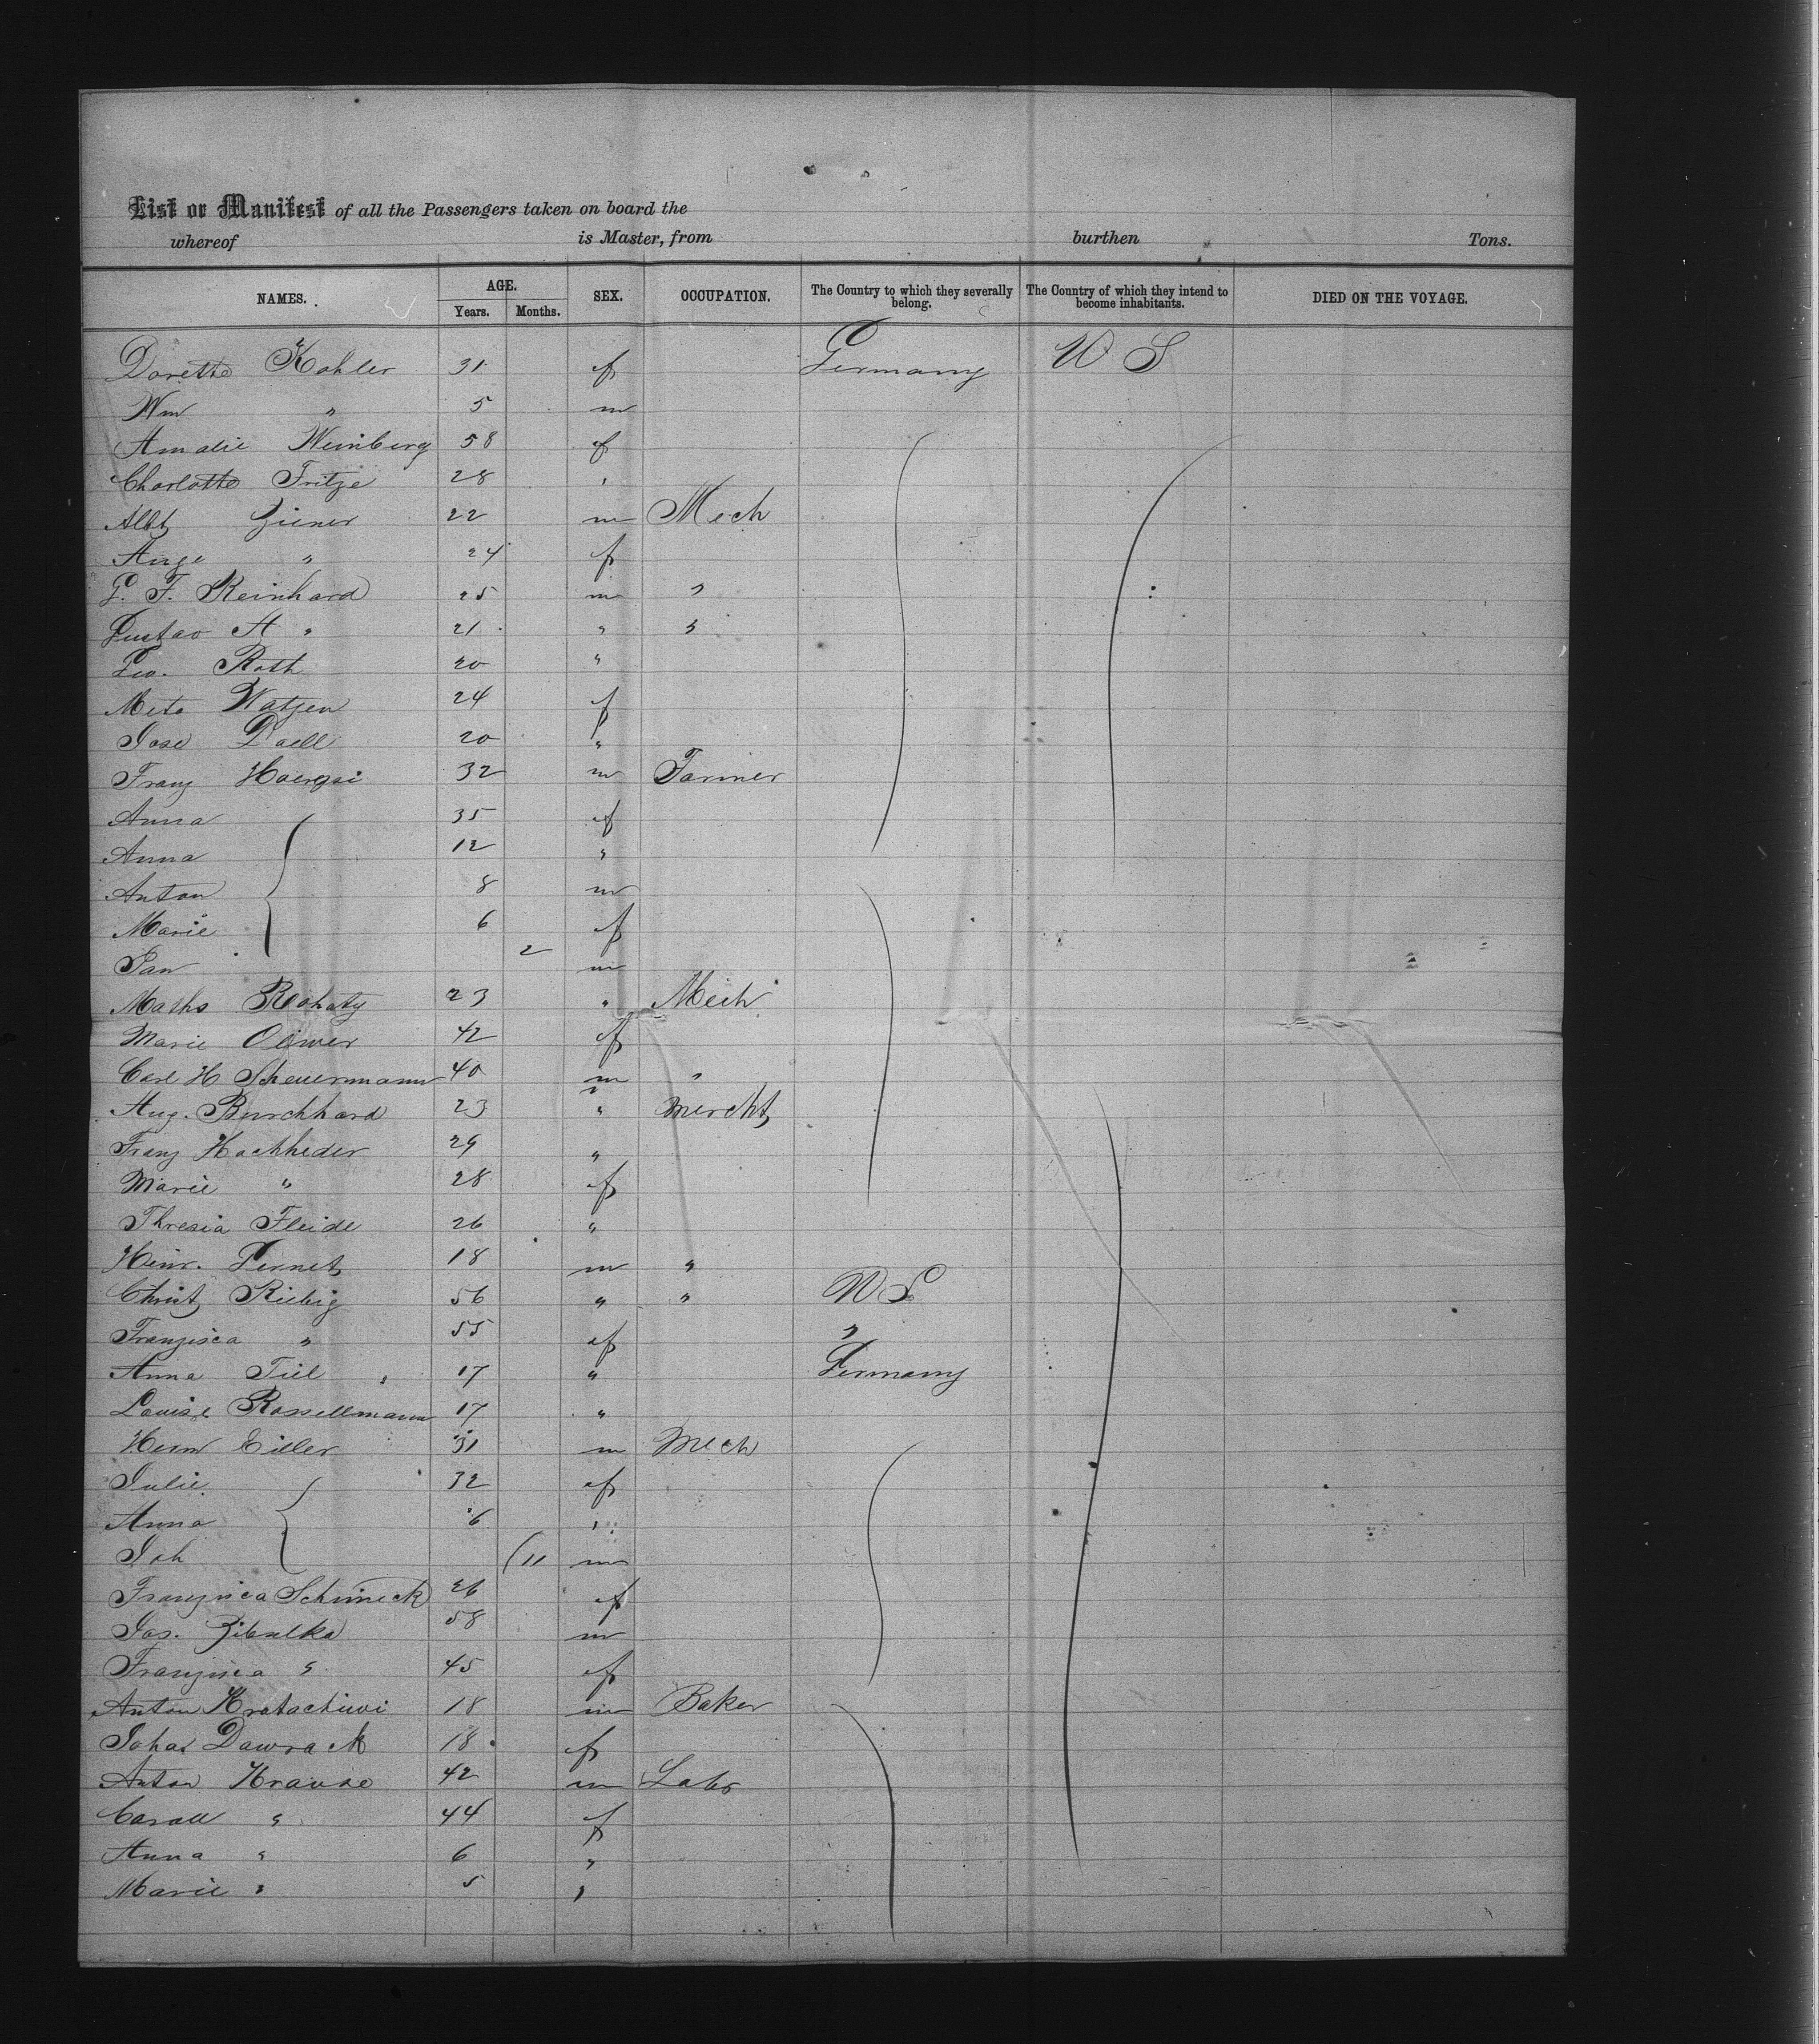 List or Manifest of all the Passengers taken on board the
whereof is Master, from burthen Tons.
NAMES. AGE. SEX. OCCUPATION. The Country to which they severally belong. The Country of which they intend to become inhabitants. DIED ON THE VOYAGE.
Years. Months.
Dorette Kohler 31 f Germany U S
Wm " 5 m
Amalie Weinberg 58 f
Charlotte Fritze 28 "
Albt Ziener 22 m Mech
Auge " 24 f
G. F. Reinhard 25 m "
Gustav A " 21 " "
Geo. Roth 20 "
Meta Watjen 24 f
Jose 20 "
Franz 32 m Farmer
Anna 35 f
Anna 12 "
Anton 8 m
Marie 6 f
Jan 2 m
Maths Rohaty 23 " Mech
Marie 42 f
Carl H Scheuermann 40 m "
Aug. Burchhard 23 " Mercht
Franz Hochheder 29 "
Marie " 28 f
Thresia Fleidl 26 "
Heinr. 18 m "
Christ Riebig 56 " " U S
Franzisca " 55 f "
Anna Tiel 17 " Germany
Louise Rossellmann 17 "
Herm Eiller 31 m Mech
Julie 32 f
Anna 6 "
Joh 11 m
Franzisca Schimeck 26 f
Jos. Zibulka 58 m
Franzisca " 45 f
Anton Kratochiwi 18 m Baker
Johae Dawrack 18 f
Anton Krause 42 m Labr
44 f
Anna " 6 "
Marie " 5 "